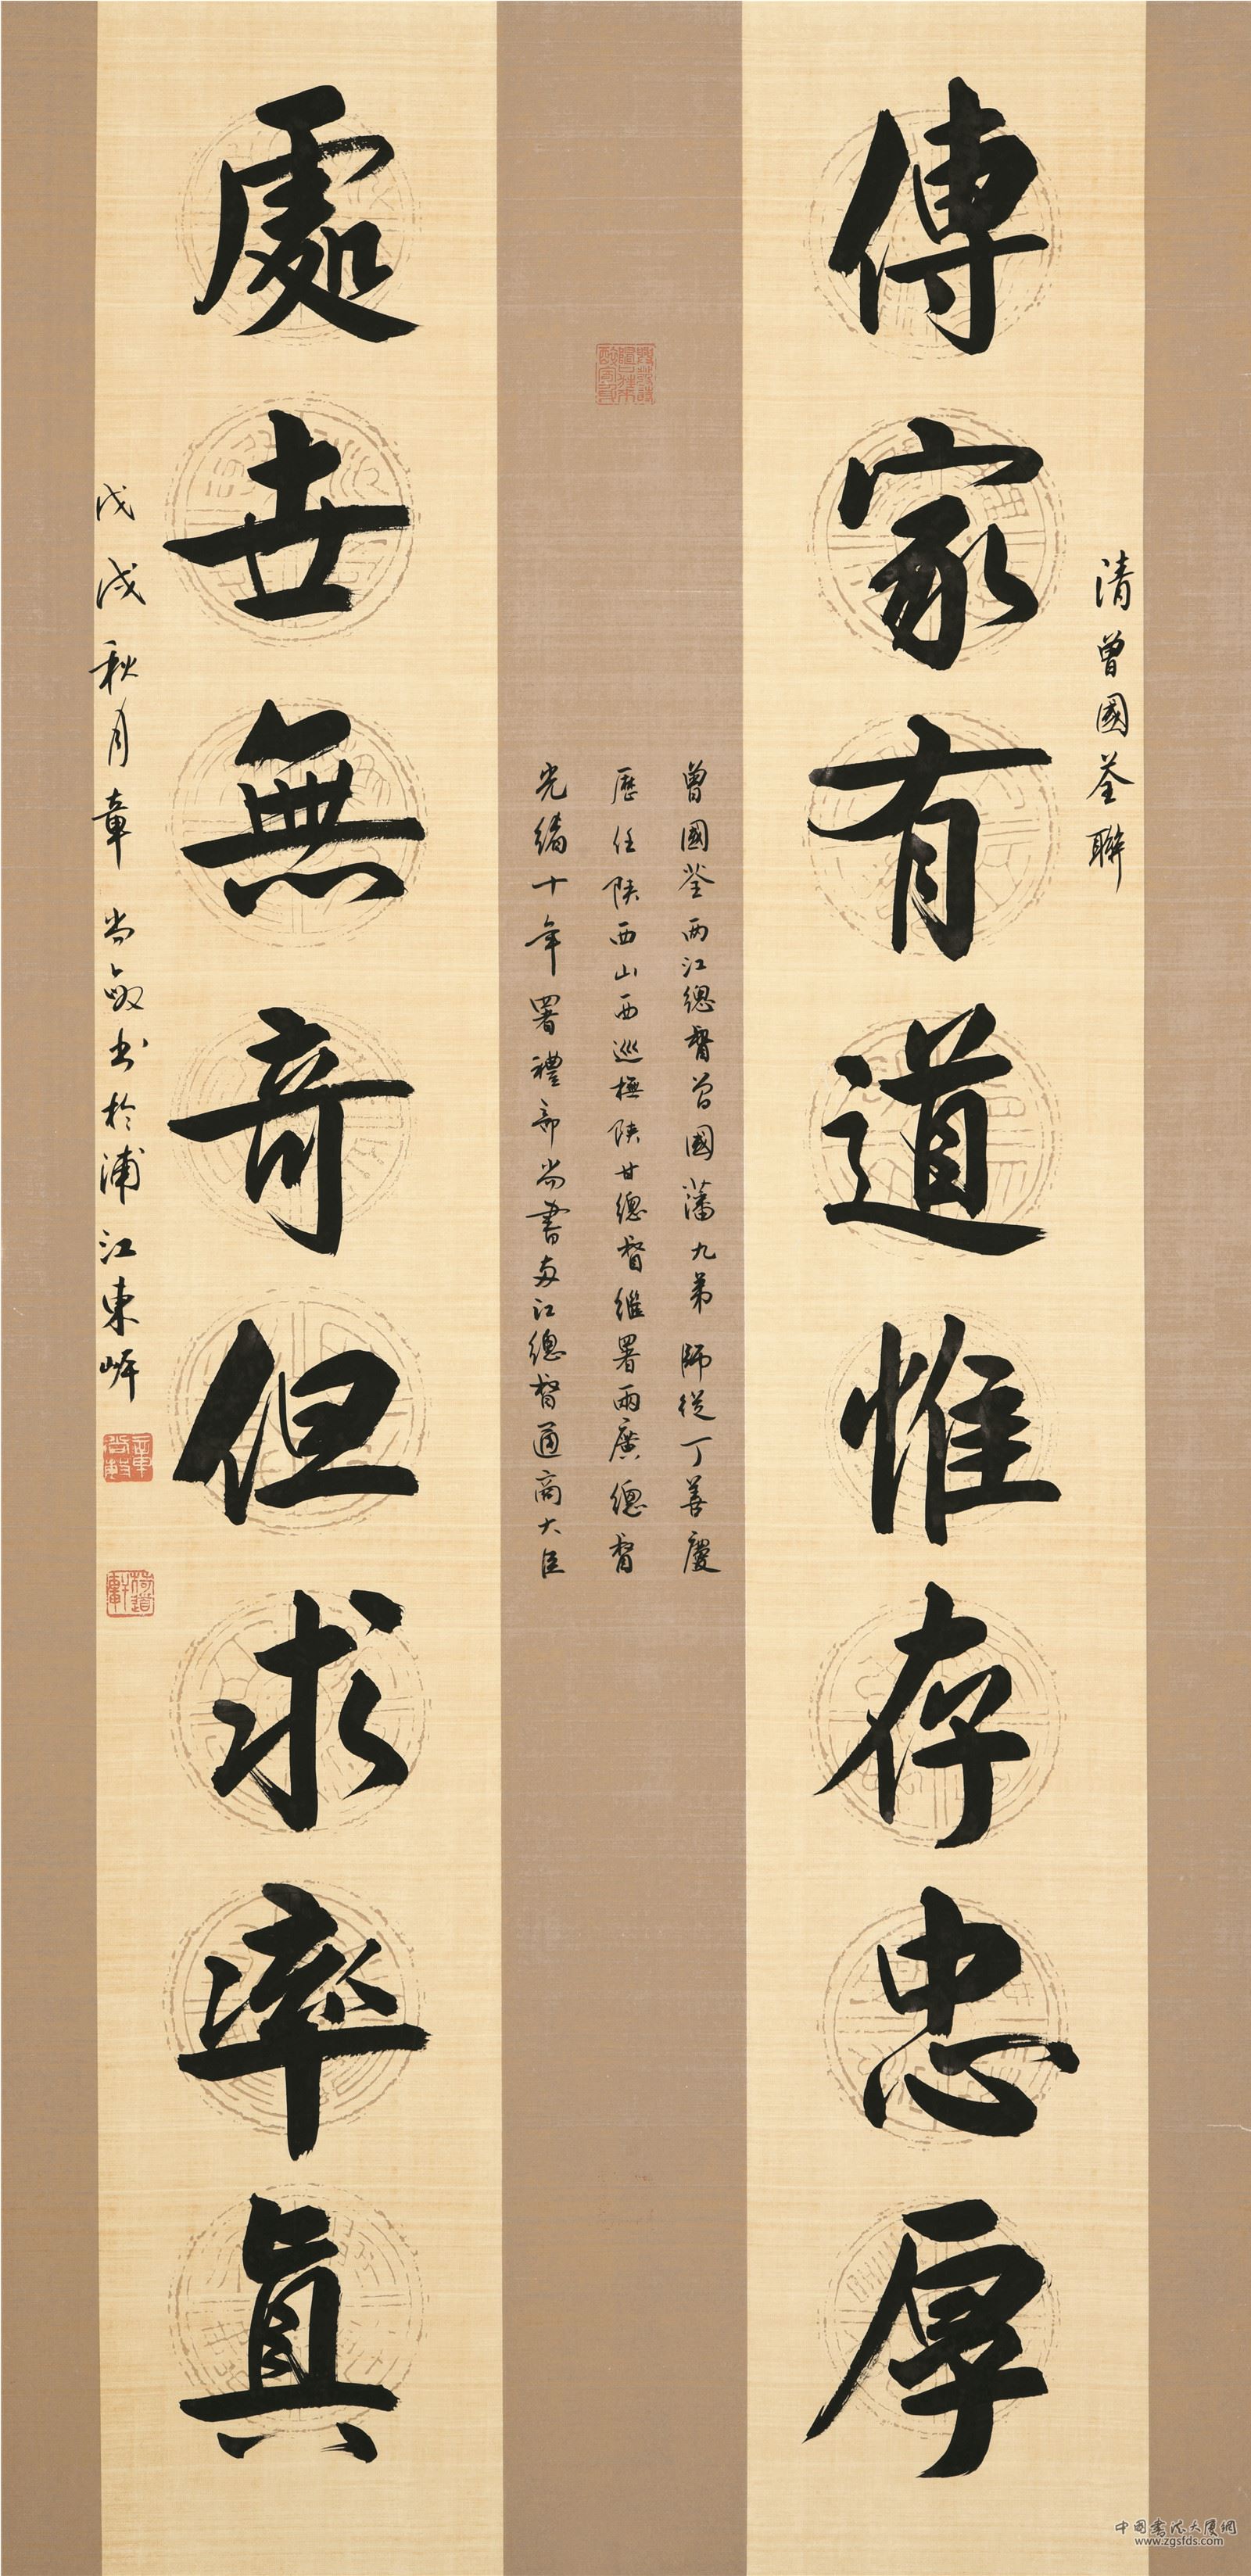 清曾國荃聯
傳家有道惟存忠厚
曾國荃两江總督曾國藩九弟師從丁善慶
歷任陕西山西巡撫陕甘總督繼署兩廣總督
光緒十年署禮部尚書两江總督通商大臣
處世無奇但求率真
戊戌秋月章尚敏书於浦江東岸
中国书法大厦網
www.zgsfds.com